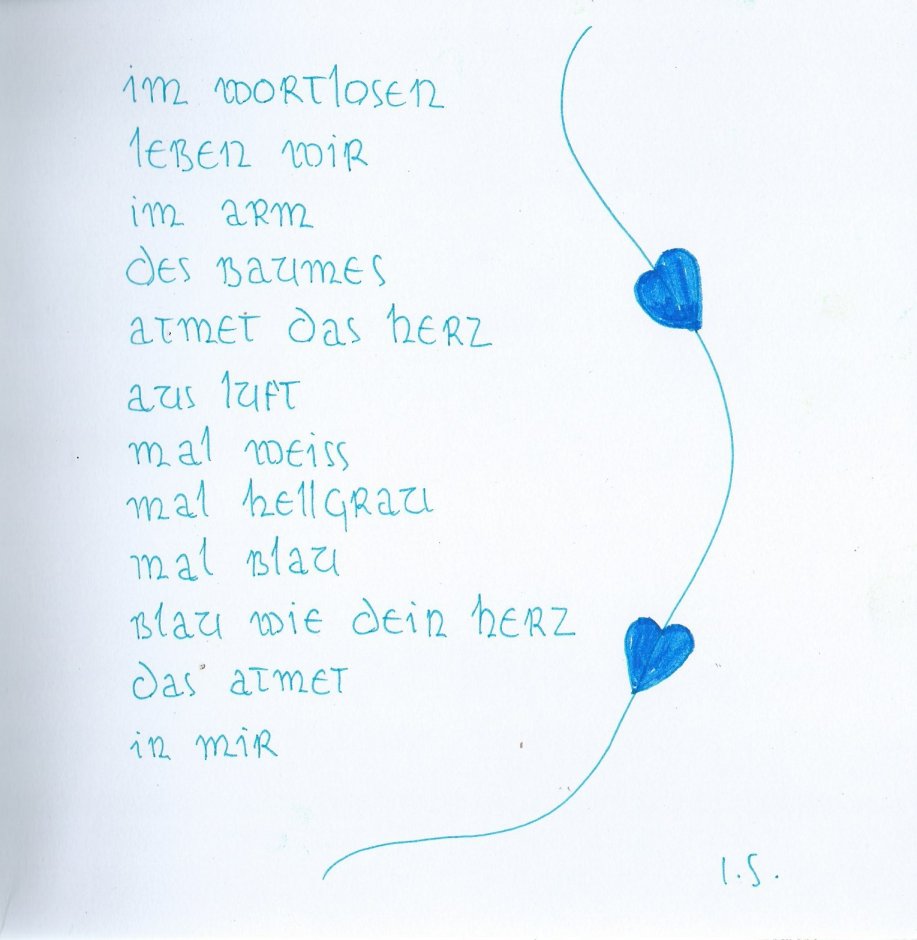 im wortlosen
leben wir
im arm
des baumes
atmet das herz
aus luft
mal weiss
mal hellgrau
mal blau
blau wie dein herz
das atmet
in mir
I.S.